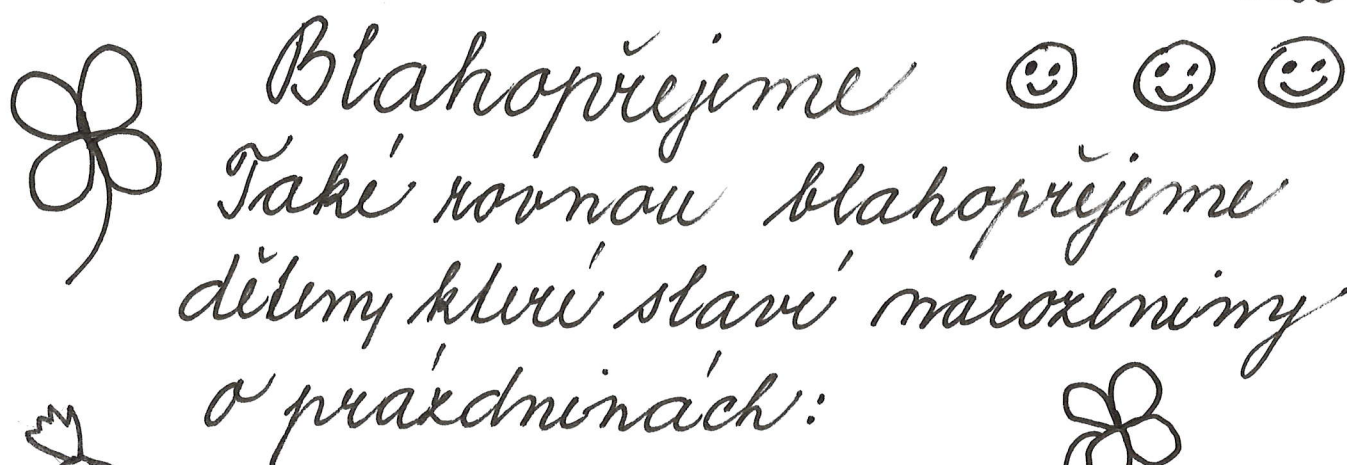 Blahopřejeme
Také rovnou blahopřejeme
dětem, které slaví narozeniny
o prázdninách: